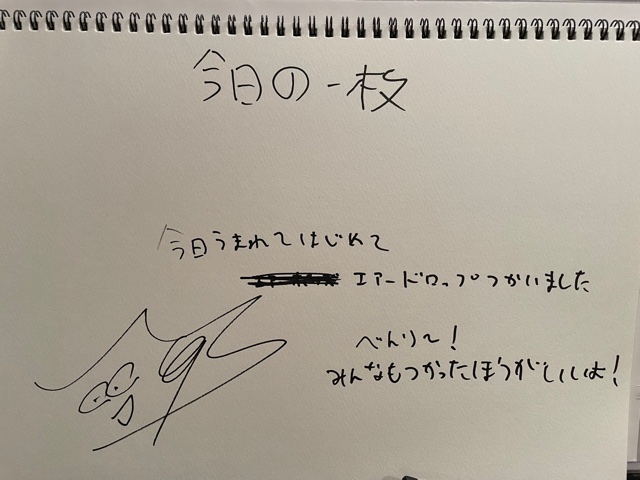 今日の一枚
今日うまれてはじめて
エアードロップつかいました
べんり〜!
みんなもつかったほうがいいよ!